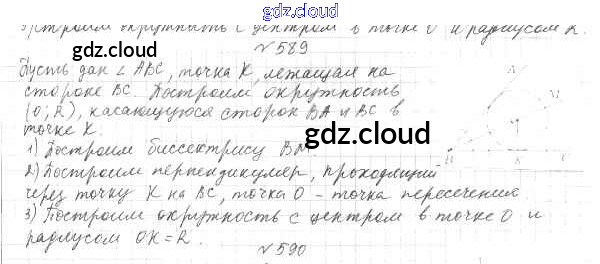 gdz.cloud
Построим окружность с центром в точке O и радиусом R.
№ 589
gdz.cloud
Пусть дан ∠ ABC, точка K, лежащая на
стороне BC. Построим окружность
(O; R), касающуюся сторон BA и BC в
точке K.
gdz.cloud
1) Построим биссектрису BM.
2) Построим перпендикуляр, проходящий
через точку K на BC, точка O - точка пересечения.
3) Построим окружность с центром в точке O и
радиусом OK = R.
gdz.cloud
№ 590
A
B
K